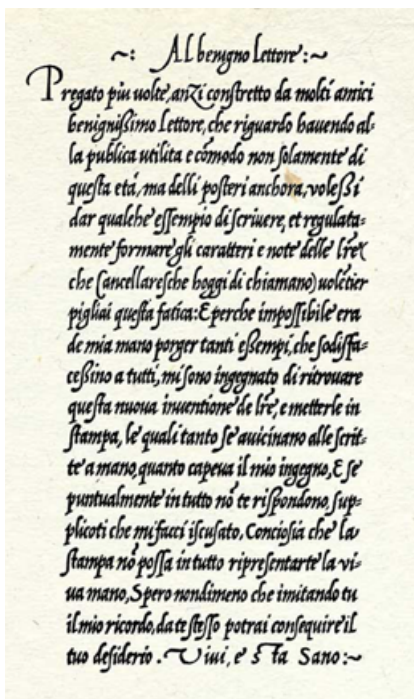 ~: Al benigno lettore :~
Pregato piu uolte, anzi constretto da molti amici
benignissimo Lettore, che riguardo hauendo al-
la publica utilita e cómodo non solamente di
questa etá, ma delli posteri anchora, volessi
dar qualche essempio di scriuere, et regulata-
mente formare gli caratteri e note delle lrẽ
che Cancellaresche hoggi di chiamano) uolẽtier
pigliai questa fatica: E perche impossibile era
de mia mano porger tanti essempi, che sodisfa-
cessino a tutti, mi sono ingegnato di ritrouare
questa nuoua inuentione de lrẽ, e metterle in
stampa, le quali tanto se auicinano alle scrit-
te a mano, quanto capeua il mio ingegno, E se
puntualmente in tutto nõ te rispondono, sup-
plicoti che mi facci iscusato, Conciosia che la
stampa nõ possa in tutto ripresentarte la vi-
ua mano, Spero nondimeno che imitando tu
il mio ricordo, da te stesso potrai consequire il
tuo desiderio. Viui, e sta Sano :~